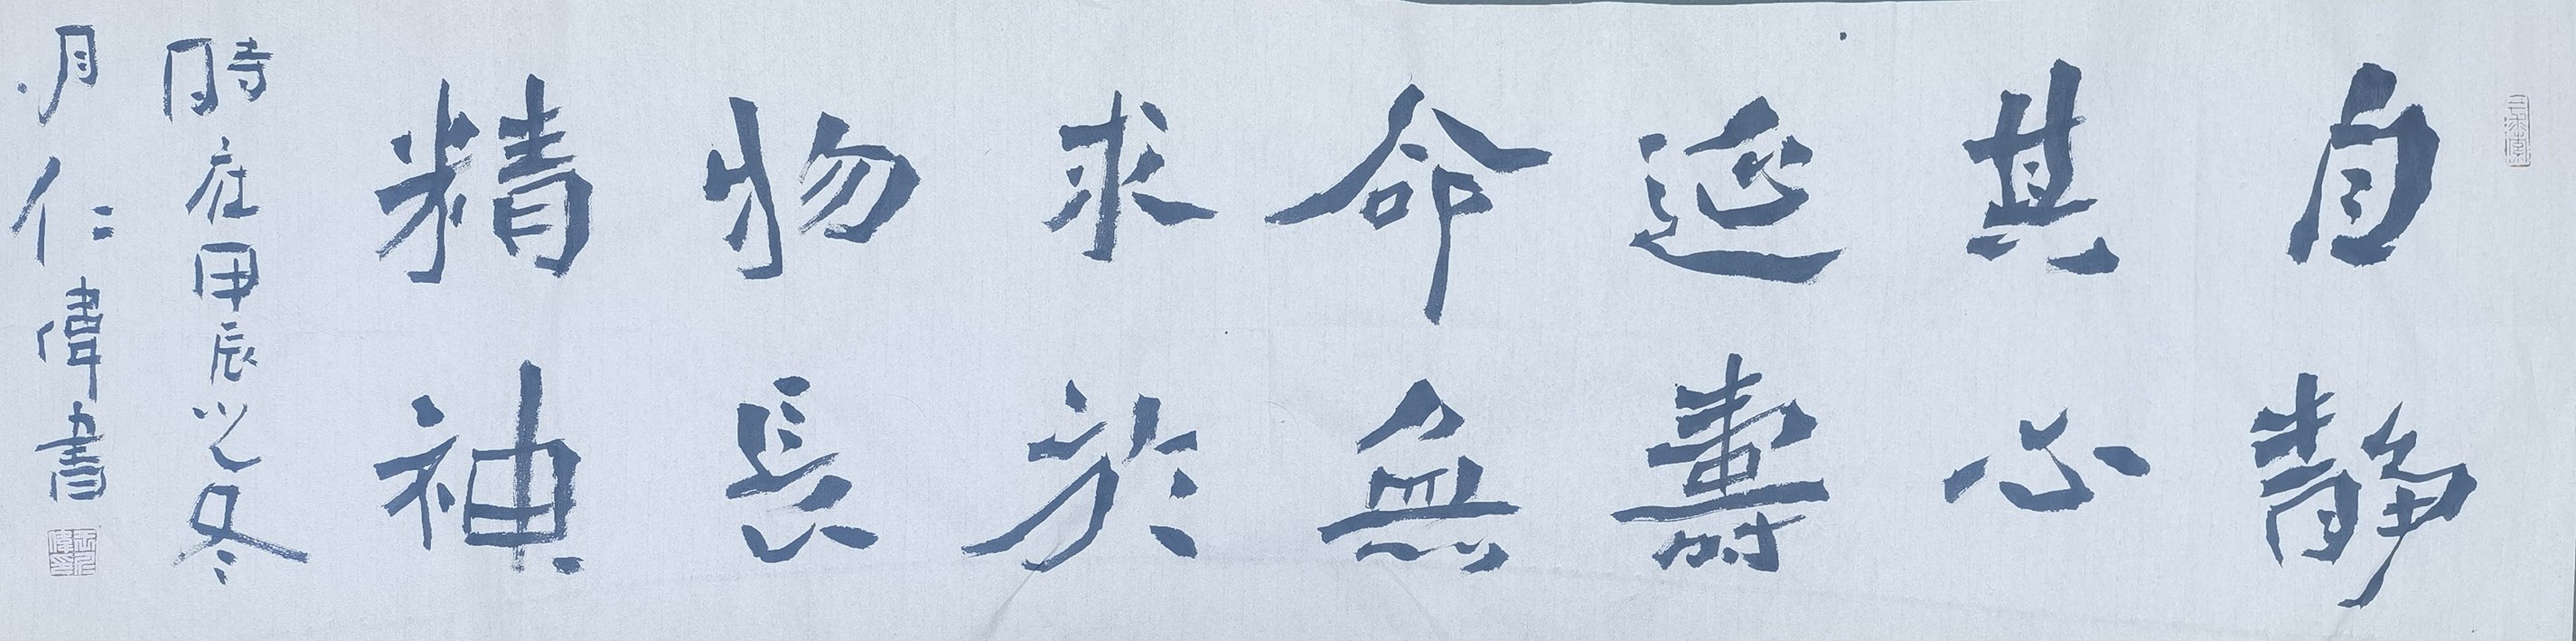 自静
其心
延壽
命無
求於
物長
精神
時在甲辰之冬
月仁偉書